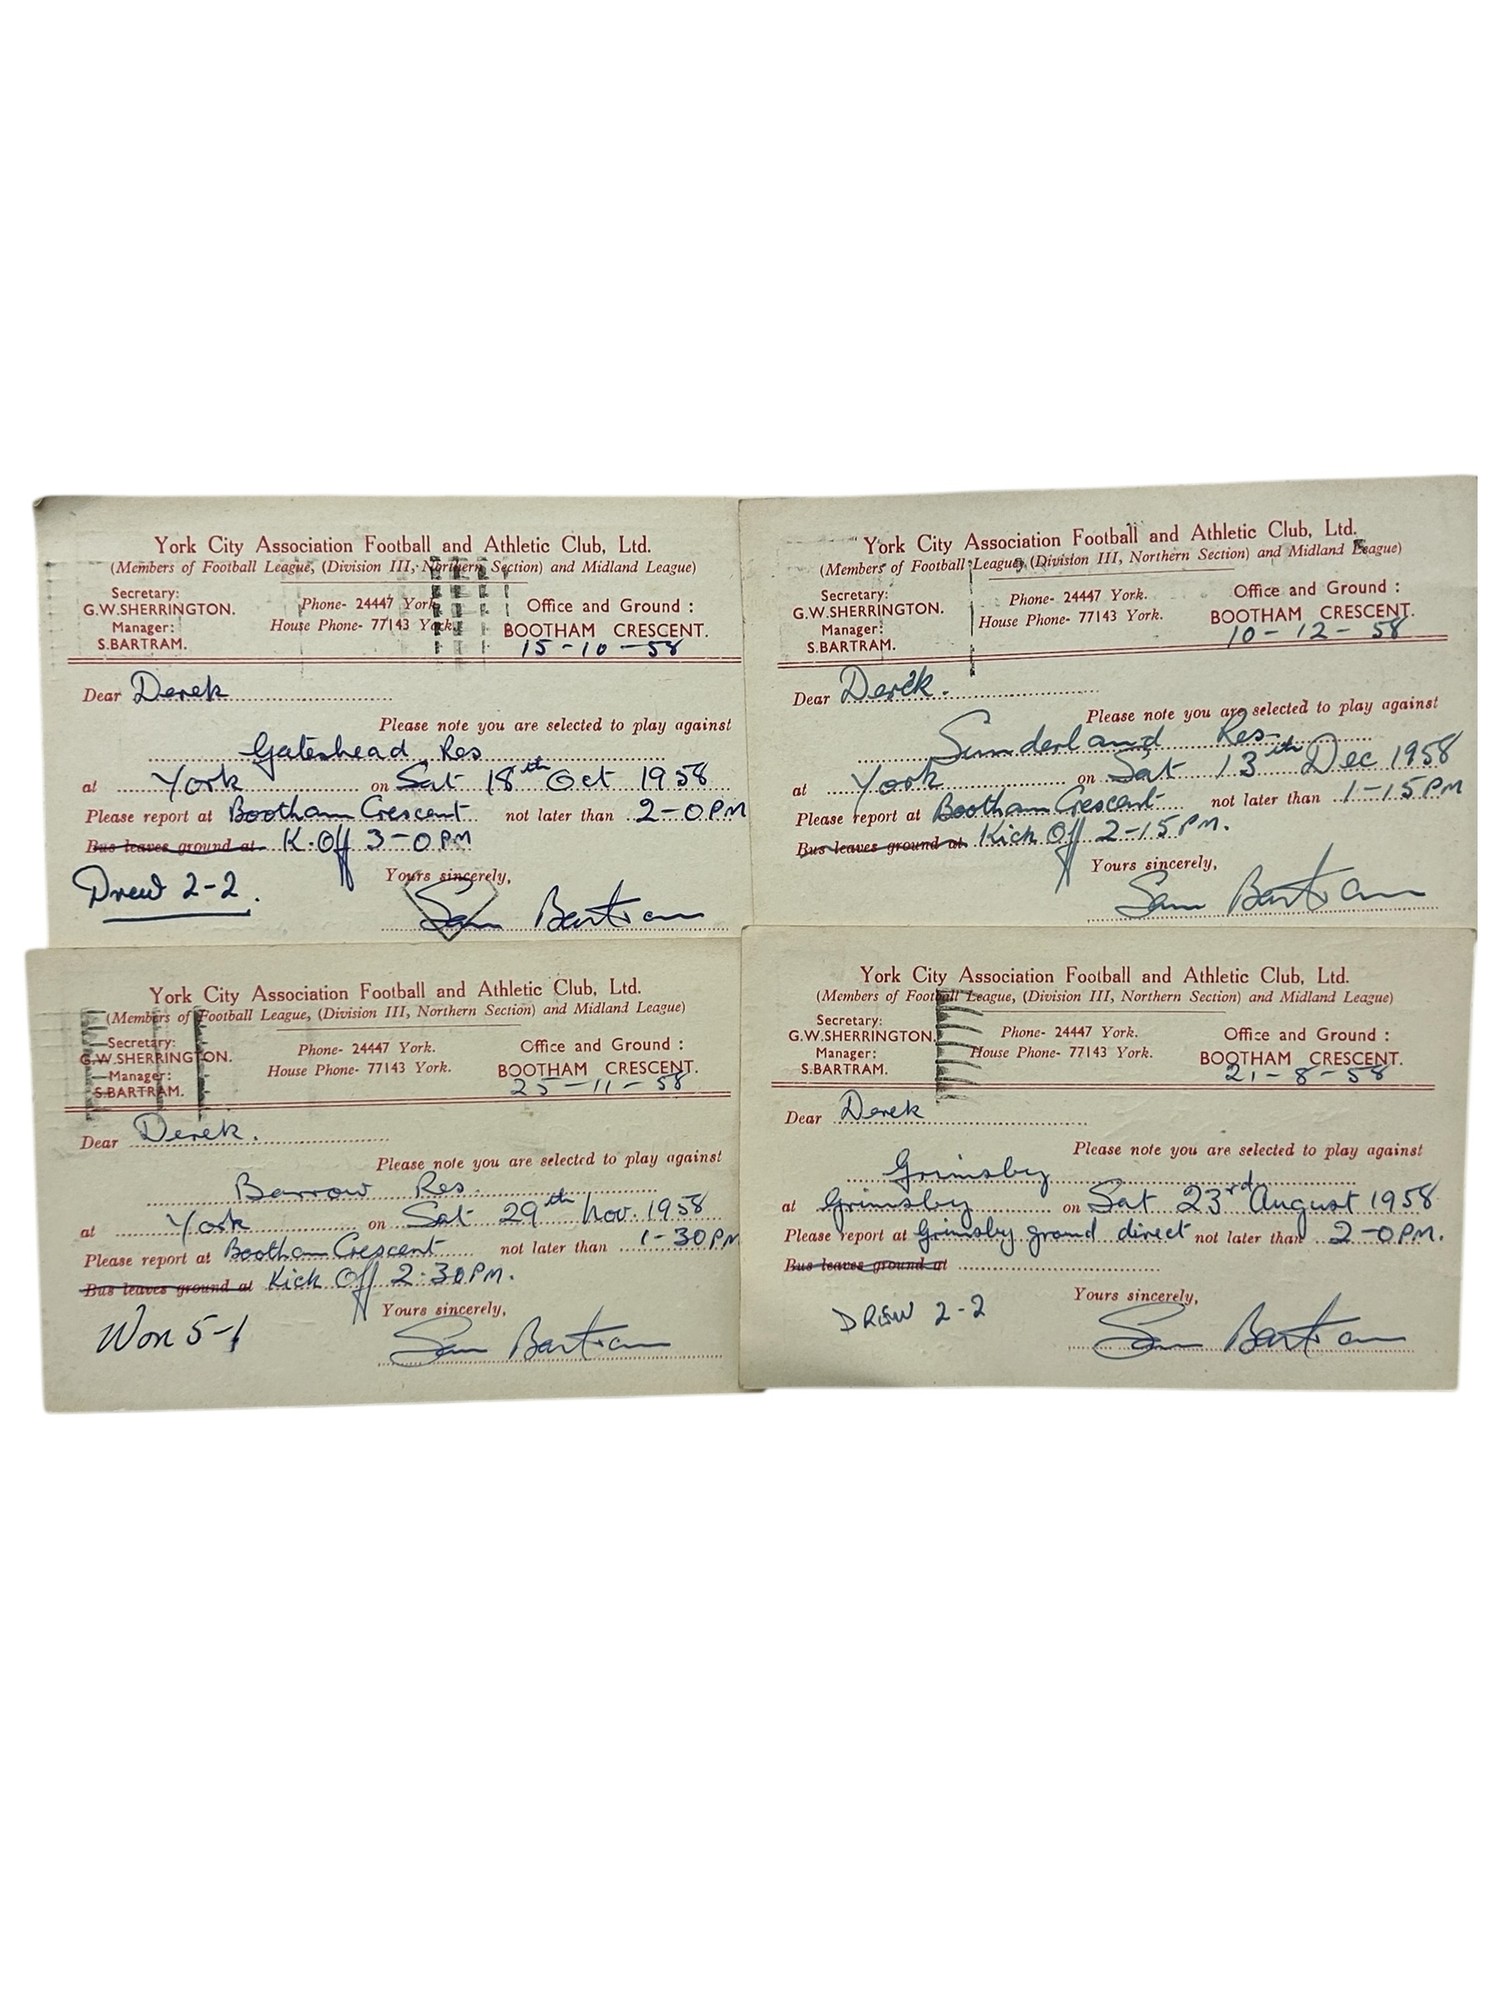 York City Association Football and Athletic Club, Ltd.
(Members of Football League, (Division III, Northern Section) and Midland League)
Secretary:
G.W.SHERRINGTON.
Manager:
S.BARTRAM.
Phone- 24447 York.
House Phone- 77143 York.
Office and Ground :
BOOTHAM CRESCENT.
15-10-58
Dear Derek
Please note you are selected to play against
Gateshead Res
at York on Sat 18th Oct 1958
Please report at Bootham Crescent not later than 2-0PM
Bus leaves ground at K.Off 3-0PM
Drew 2-2.
Yours sincerely,
Sam Bartram
York City Association Football and Athletic Club, Ltd.
(Members of Football League, (Division III, Northern Section) and Midland League)
Secretary:
G.W.SHERRINGTON.
Manager:
S.BARTRAM.
Phone- 24447 York.
House Phone- 77143 York.
Office and Ground :
BOOTHAM CRESCENT.
10-12-58
Dear Derek.
Please note you are selected to play against
Sunderland Res
at York on Sat 13th Dec 1958
Please report at Bootham Crescent not later than 1-15PM
Bus leaves ground at Kick Off 2-15PM.
Yours sincerely,
Sam Bartram
York City Association Football and Athletic Club, Ltd.
(Members of Football League, (Division III, Northern Section) and Midland League)
Secretary:
G.W.SHERRINGTON.
Manager:
S.BARTRAM.
Phone- 24447 York.
House Phone- 77143 York.
Office and Ground :
BOOTHAM CRESCENT.
25-11-58
Dear Derek.
Please note you are selected to play against
Barrow Res.
at York on Sat 29th Nov. 1958
Please report at Bootham Crescent not later than 1-30PM
Bus leaves ground at Kick Off 2.30PM.
Won 5-1
Yours sincerely,
Sam Bartram
York City Association Football and Athletic Club, Ltd.
(Members of Football League, (Division III, Northern Section) and Midland League)
Secretary:
G.W.SHERRINGTON.
Manager:
S.BARTRAM.
Phone- 24447 York.
House Phone- 77143 York.
Office and Ground :
BOOTHAM CRESCENT.
21-8-58
Dear Derek
Please note you are selected to play against
Grimsby
at Grimsby on Sat 23rd August 1958
Please report at Grimsby ground direct not later than 2-0PM.
Bus leaves ground at
DREW 2-2
Yours sincerely,
Sam Bartram